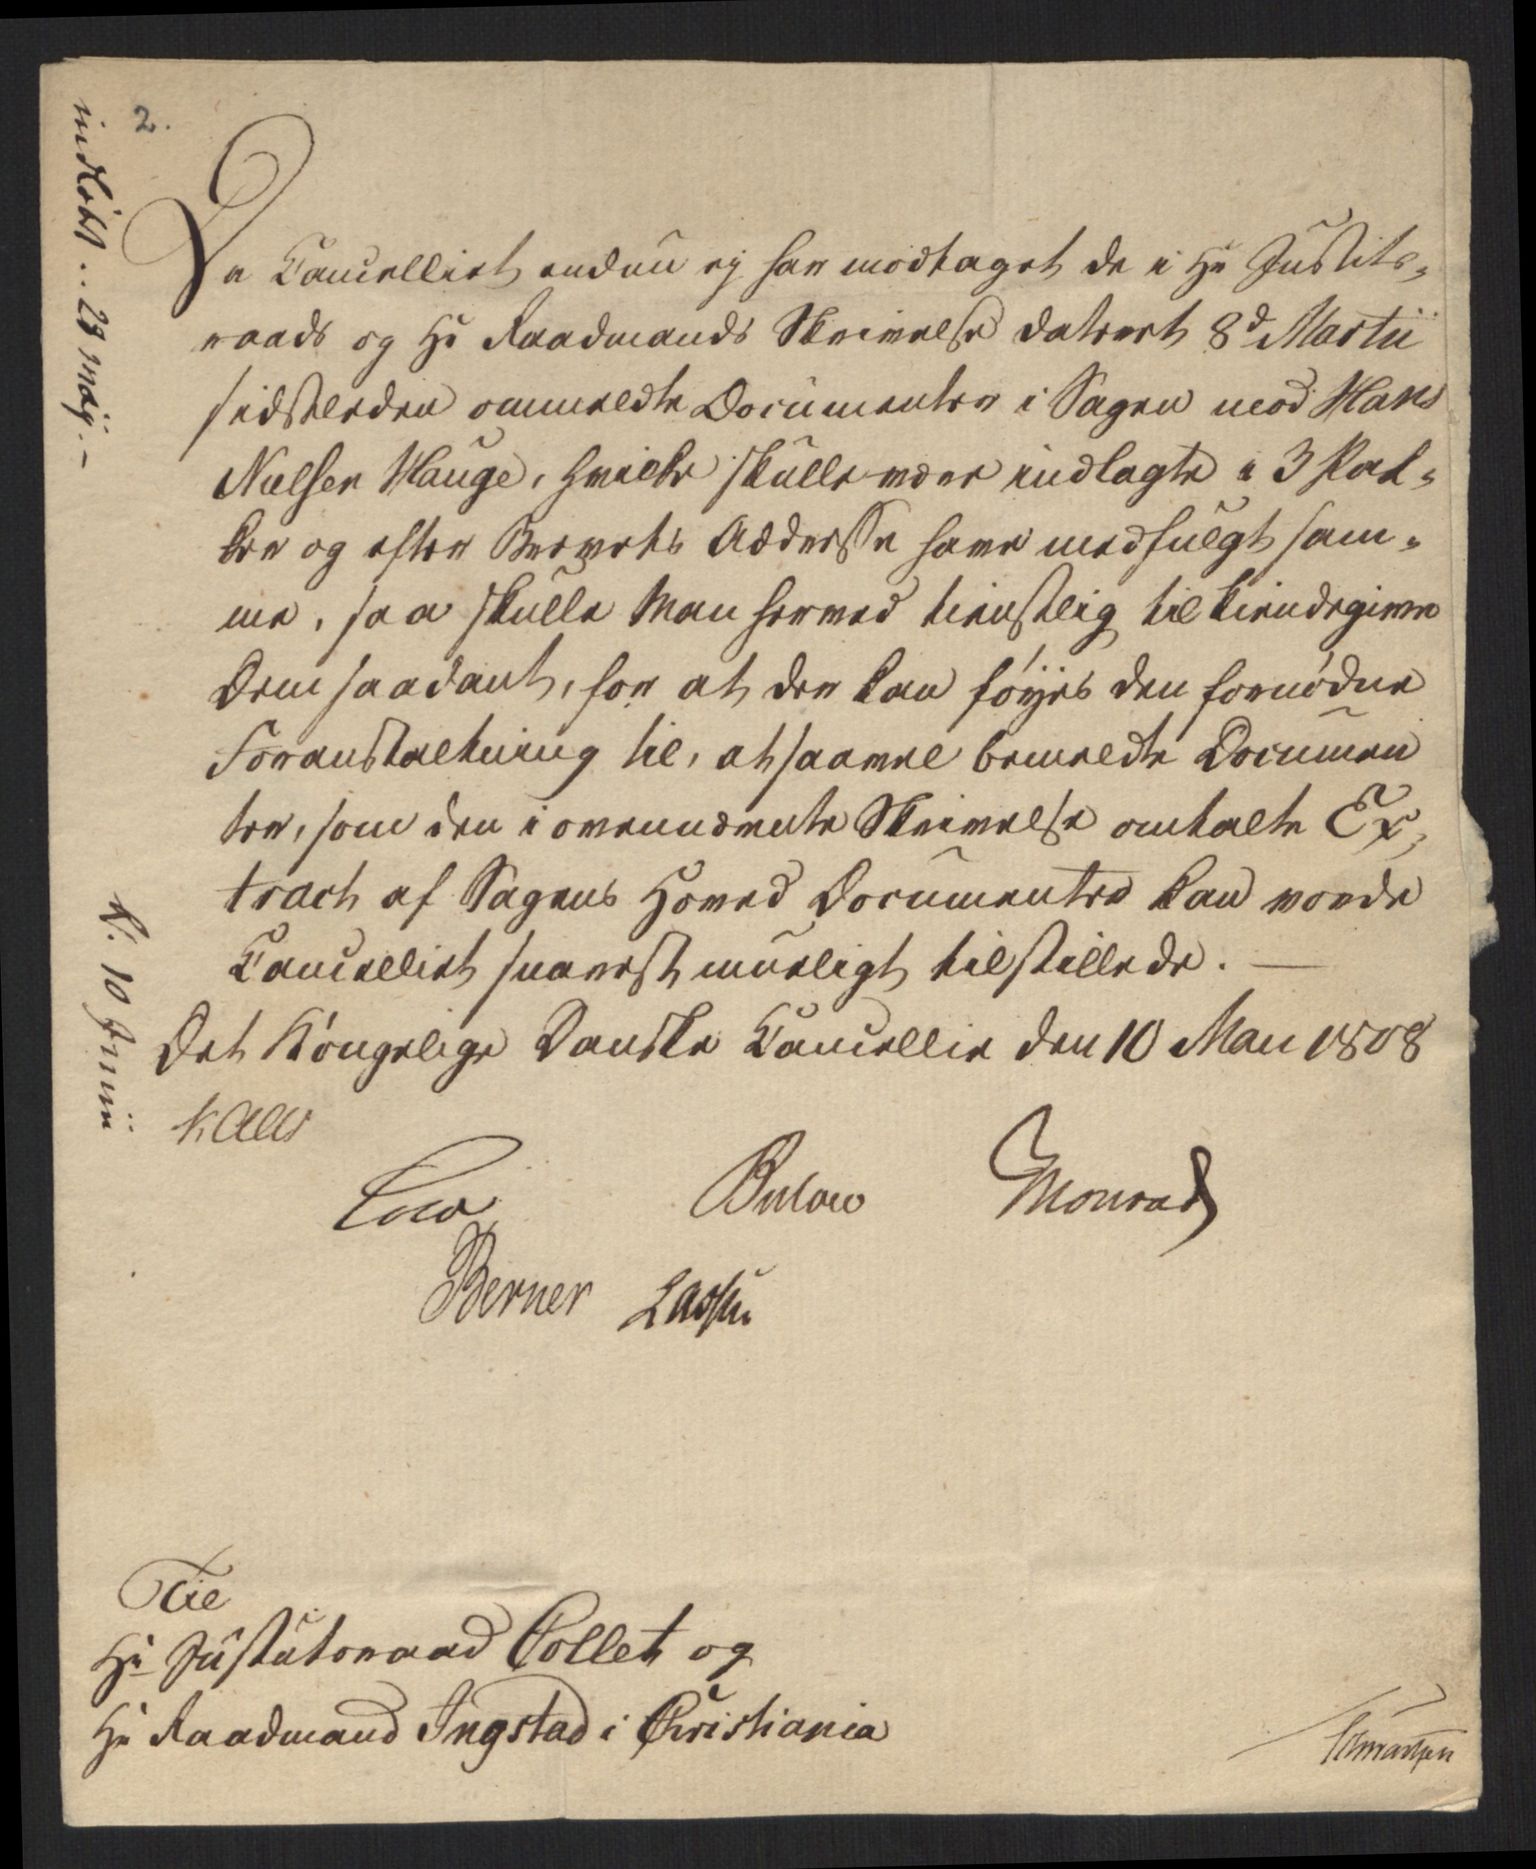 2.
indkom̅ .. 29 Maij. –
Da Cancelliet endnu ej har modtaget de i Hr Justits-
raads og Hr Raadmands Skrivelse dateret 8d Martii
sidstleden ommeldte Documenter i Sagen mod Hans
Nielsen Hauge, hvilke skulle være indlagte i 3 Pak-
ker og efter Brevets Addresse have medfulgt sam-
me, saa skulle Man herved tienstlig tilkiendegive
Dem saadant, for at der kan föyes den fornödne
Foranstaltning til, at saavel bemeldte Documen
ter, som den i ovennævnte Skrivelse omtalte Ex-
tract af Sagens Hoved Documenter kan vorde
Cancelliet snarest mueligt tilstillede. —
Det Kóngelige Danske Cancellie den 10 Maii 1808
Kaas
Cold Bülow Monrad
Berner Lassen
10 Junii
Til
Hr Justitsraad Collet og
Hr Raadmand Ingstad i Christiania